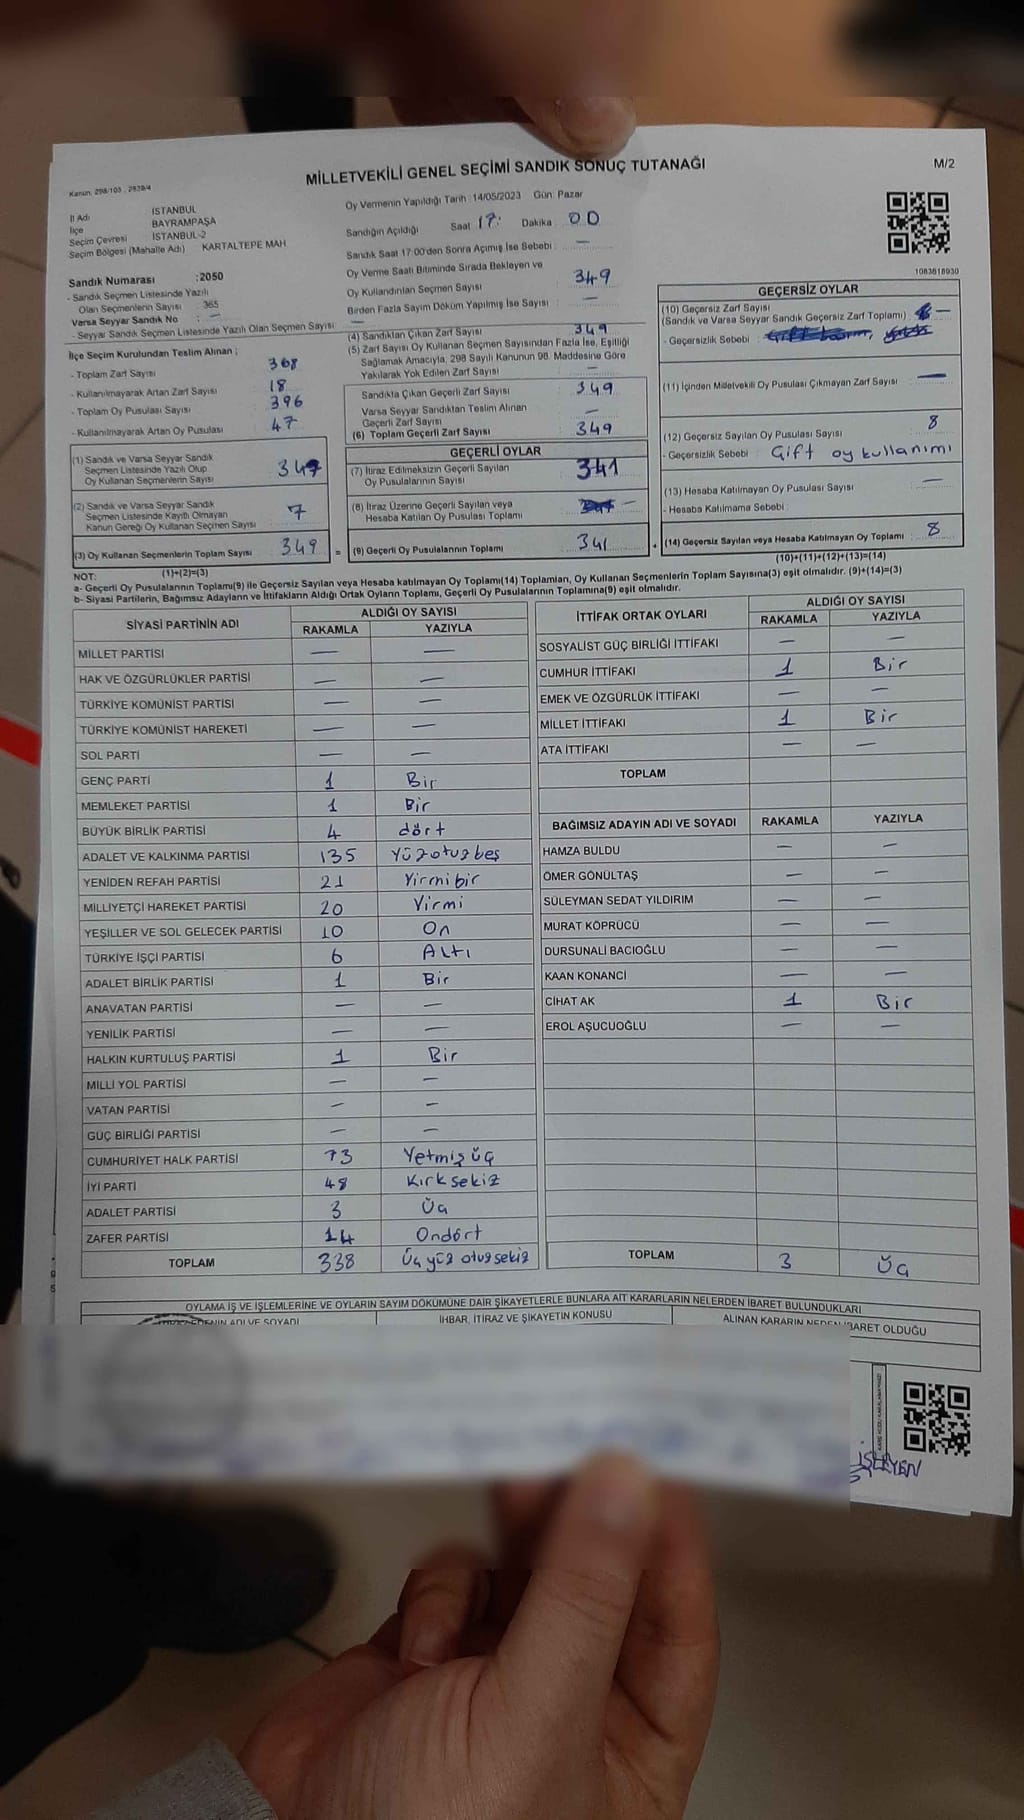 MİLLETVEKİLİ GENEL SEÇİMİ SANDIK SONUÇ TUTANAĞI
M/2
Kanun, 298/103 , 2839/4
İl Adı İSTANBUL
İlçe BAYRAMPAŞA
Seçim Çevresi İSTANBUL-2
Seçim Bölgesi (Mahalle Adı) KARTALTEPE MAH
Sandık Numarası :2050
- Sandık Seçmen Listesinde Yazılı
Olan Seçmenlerin Sayısı 365
Varsa Seyyar Sandık No : —
- Seyyar Sandık Seçmen Listesinde Yazılı Olan Seçmen Sayısı —
İlçe Seçim Kurulundan Teslim Alınan ;
- Toplam Zarf Sayısı 368
- Kullanılmayarak Artan Zarf Sayısı 18
- Toplam Oy Pusulası Sayısı 396
- Kullanılmayarak Artan Oy Pusulası 47
(1) Sandık ve Varsa Seyyar Sandık
Seçmen Listesinde Yazılı Olup
Oy Kullanan Seçmenlerin Sayısı
(2) Sandık ve Varsa Seyyar Sandık
Seçmen Listesinde Kayıtlı Olmayan
Kanun Gereği Oy Kullanan Seçmen Sayısı 7
(3) Oy Kullanan Seçmenlerin Toplam Sayısı 349 =
Oy Vermenin Yapıldığı Tarih : 14/05/2023 Gün: Pazar
Sandığın Açıldığı Saat 17: Dakika 00
Sandık Saat 17:00'den Sonra Açımış İse Sebebi : —
Oy Verme Saati Bitiminde Sırada Bekleyen ve
Oy Kullandırılan Seçmen Sayısı 349
Birden Fazla Sayım Döküm Yapılmış İse Sayısı : —
(4) Sandıktan Çıkan Zarf Sayısı 349
(5) Zarf Sayısı Oy Kullanan Seçmen Sayısından Fazla İse, Eşitliği
Sağlamak Amacıyla, 298 Sayılı Kanunun 98. Maddesine Göre
Yakılarak Yok Edilen Zarf Sayısı —
Sandıkta Çıkan Geçerli Zarf Sayısı 349
Varsa Seyyar Sandıktan Teslim Alınan
Geçerli Zarf Sayısı —
(6) Toplam Geçerli Zarf Sayısı 349
GEÇERLİ OYLAR
(7) İtiraz Edilmeksizin Geçerli Sayılan
Oy Pusulalarının Sayısı 341
(8) İtiraz Üzerine Geçerli Sayılan veya
Hesaba Katılan Oy Pusulası Toplamı —
(9) Geçerli Oy Pusulalarının Toplamı 341 +
1083618930
GEÇERSİZ OYLAR
(10) Geçersiz Zarf Sayısı
(Sandık ve Varsa Seyyar Sandık Geçersiz Zarf Toplamı) —
- Geçersizlik Sebebi :
(11) İçinden Milletvekili Oy Pusulası Çıkmayan Zarf Sayısı —
(12) Geçersiz Sayılan Oy Pusulası Sayısı 8
- Geçersizlik Sebebi : Çift oy kullanımı
(13) Hesaba Katılmayan Oy Pusulası Sayısı —
- Hesaba Katılmama Sebebi :
(14) Geçersiz Sayılan veya Hesaba Katılmayan Oy Toplamı 8
NOT: (1)+(2)=(3) (10)+(11)+(12)+(13)=(14)
a- Geçerli Oy Pusulalarının Toplamı(9) ile Geçersiz Sayılan veya Hesaba katılmayan Oy Toplamı(14) Toplamları, Oy Kullanan Seçmenlerin Toplam Sayısına(3) eşit olmalıdır. (9)+(14)=(3)
b- Siyasi Partilerin, Bağımsız Adayların ve İttifakların Aldığı Ortak Oyların Toplamı, Geçerli Oy Pusulalarının Toplamına(9) eşit olmalıdır.
SİYASİ PARTİNİN ADI ALDIĞI OY SAYISI
RAKAMLA YAZIYLA
MİLLET PARTİSİ — —
HAK VE ÖZGÜRLÜKLER PARTİSİ — —
TÜRKİYE KOMÜNİST PARTİSİ — —
TÜRKİYE KOMÜNİST HAREKETİ — —
SOL PARTİ — —
GENÇ PARTİ 1 Bir
MEMLEKET PARTİSİ 1 Bir
BÜYÜK BİRLİK PARTİSİ 4 dört
ADALET VE KALKINMA PARTİSİ 135 Yüzotuzbeş
YENİDEN REFAH PARTİSİ 21 Yirmibir
MİLLİYETÇİ HAREKET PARTİSİ 20 Yirmi
YEŞİLLER VE SOL GELECEK PARTİSİ 10 On
TÜRKİYE İŞÇİ PARTİSİ 6 Altı
ADALET BİRLİK PARTİSİ 1 Bir
ANAVATAN PARTİSİ — —
YENİLİK PARTİSİ — —
HALKIN KURTULUŞ PARTİSİ 1 Bir
MİLLİ YOL PARTİSİ — —
VATAN PARTİSİ — —
GÜÇ BİRLİĞİ PARTİSİ — —
CUMHURİYET HALK PARTİSİ 73 Yetmiş üç
İYİ PARTİ 48 Kırk sekiz
ADALET PARTİSİ 3 Üç
ZAFER PARTİSİ 14 Ondört
TOPLAM 338 Üç yüz otuz sekiz
İTTİFAK ORTAK OYLARI ALDIĞI OY SAYISI
RAKAMLA YAZIYLA
SOSYALİST GÜÇ BİRLİĞİ İTTİFAKI — —
CUMHUR İTTİFAKI 1 Bir
EMEK VE ÖZGÜRLÜK İTTİFAKI — —
MİLLET İTTİFAKI 1 Bir
ATA İTTİFAKI — —
TOPLAM
BAĞIMSIZ ADAYIN ADI VE SOYADI RAKAMLA YAZIYLA
HAMZA BULDU — —
ÖMER GÖNÜLTAŞ — —
SÜLEYMAN SEDAT YILDIRIM — —
MURAT KÖPRÜCÜ — —
DURSUNALİ BACIOĞLU — —
KAAN KONANCİ — —
CİHAT AK 1 Bir
EROL AŞUCUOĞLU — —
TOPLAM 3 Üç
OYLAMA İŞ VE İŞLEMLERİNE VE OYLARIN SAYIM DÖKÜMÜNE DAİR ŞİKAYETLERLE BUNLARA AİT KARARLARIN NELERDEN İBARET BULUNDUKLARI
ADI VE SOYADI İHBAR, İTİRAZ VE ŞİKAYETİN KONUSU ALINAN KARARIN NEDEN İBARET OLDUĞU